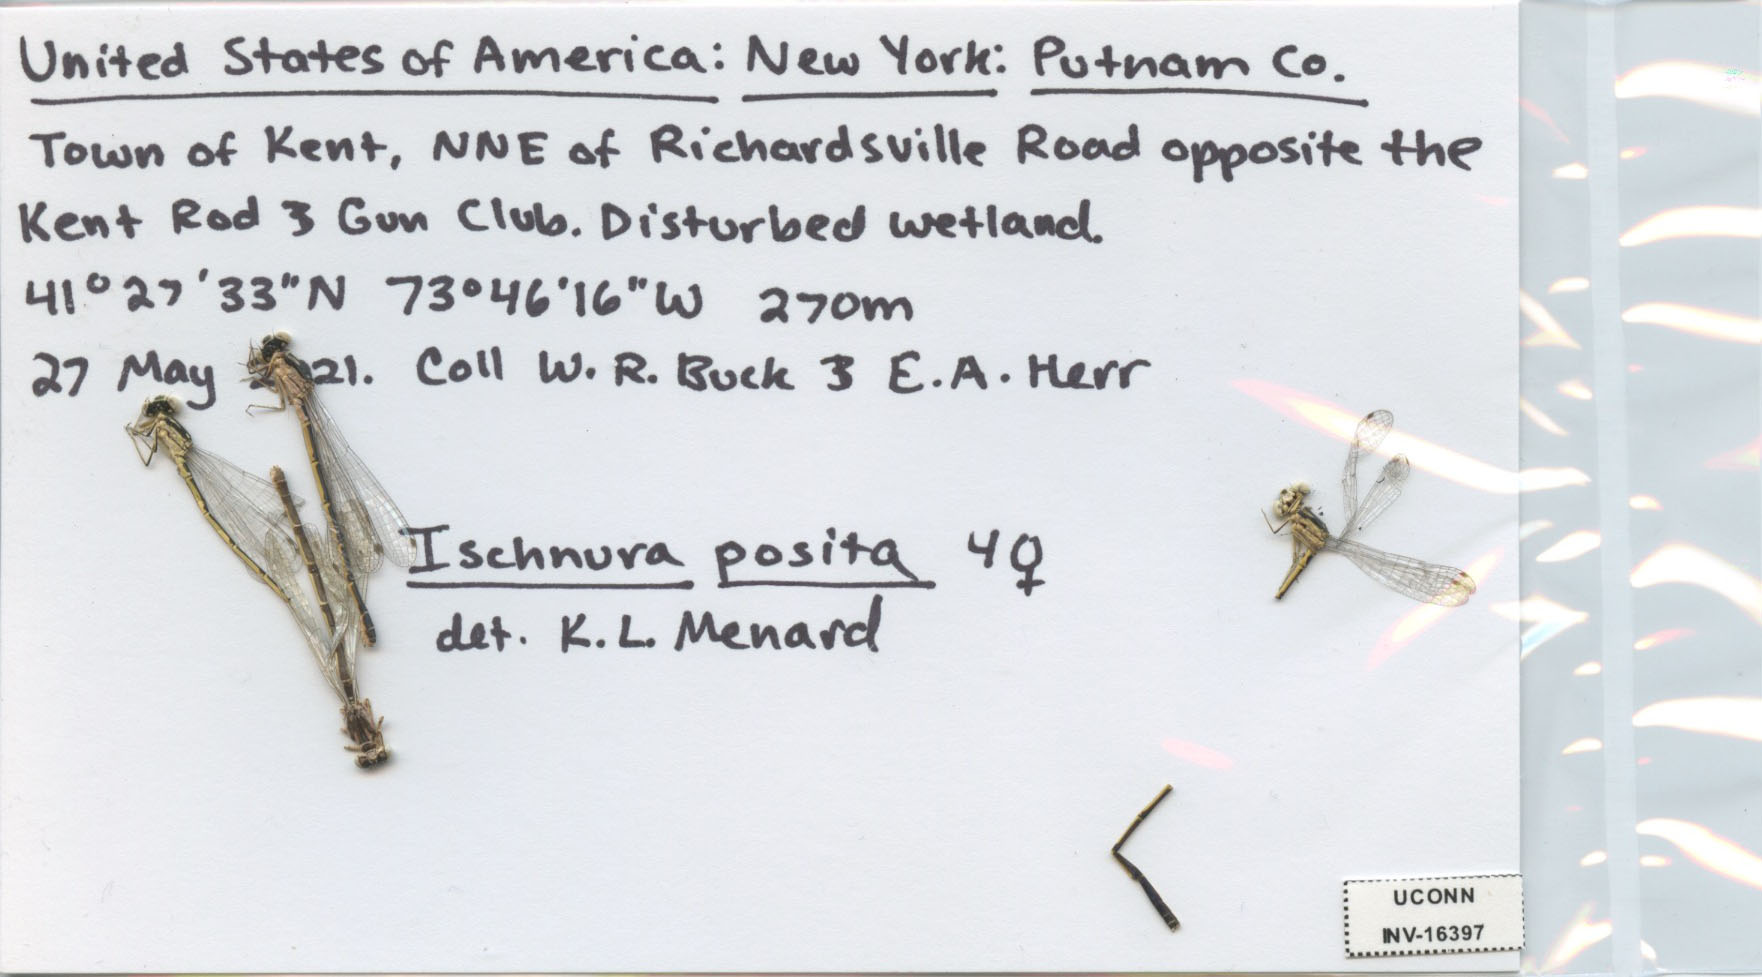 United States of America: New York: Putnam Co.
Town of Kent, NNE of Richardsville Road opposite the
Kent Rod & Gun Club. Disturbed wetland.
41°27'33"N 73°46'16"W 270m
27 May 21. Coll W. R. Buck & E. A. Herr
Ischnura posita 4♀
det. K. L. Menard
UCONN
INV-16397